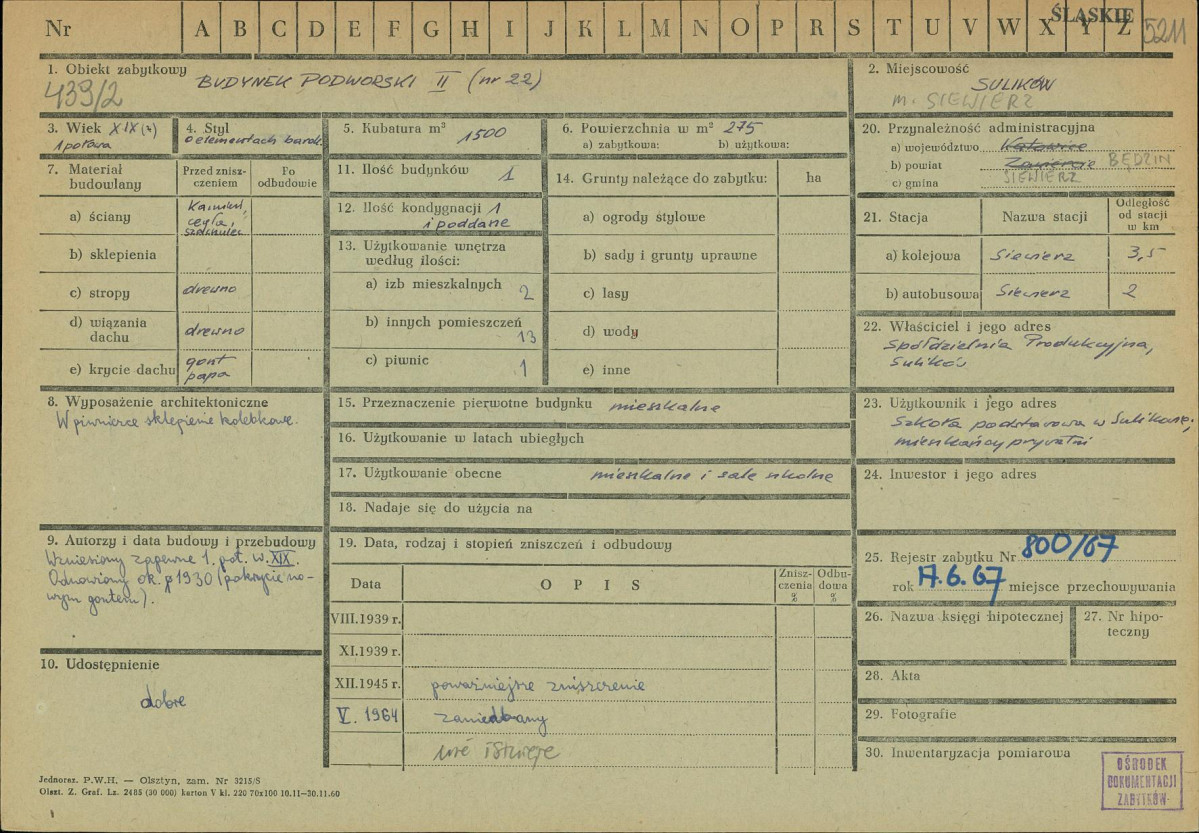 Nr A B C D E F G H I J K L M N O P R S T U V W X Y Z ŚLĄSKIE 5211
1. Obiekt zabytkowy BUDYNEK PODWORSKI II (nr 22)
439/2
2. Miejscowość
SULIKÓW
m. SIEWIERZ
3. Wiek XIX (?)
1 połowa
4. Styl
o elementach barok.
5. Kubatura m³ 1500
6. Powierzchnia w m² 275
a) zabytkowa: b) użytkowa:
20. Przynależność administracyjna
a) województwo Katowice
b) powiat Zawiercie BĘDZIN
c) gmina SIEWIERZ
7. Materiał budowlany
Przed zniszczeniem
Po odbudowie
a) ściany
kamień,
cegła,
b) sklepienia
c) stropy drewno
d) wiązania dachu drewno
e) krycie dachu gont
papa
11. Ilość budynków 1
12. Ilość kondygnacji 1
i poddane
13. Użytkowanie wnętrza
według ilości:
a) izb mieszkalnych 2
b) innych pomieszczeń 13
c) piwnic 1
14. Grunty należące do zabytku: ha
a) ogrody stylowe
b) sady i grunty uprawne
c) lasy
d) wody
e) inne
21. Stacja Nazwa stacji Odległość
od stacji
w km
a) kolejowa Siewierz 3,5
b) autobusowa Siewierz 2
22. Właściciel i jego adres
Spółdzielnia Produkcyjna,
Sulików
8. Wyposażenie architektoniczne
W piwnicce sklepienie kolebkowe.
15. Przeznaczenie pierwotne budynku mieszkalne
16. Użytkowanie w latach ubiegłych
17. Użytkowanie obecne mieszkalne i sale szkolne
18. Nadaje się do użycia na
23. Użytkownik i jego adres
Szkoła podstawowa w Sulikowie,
mieszkańcy prywatni
24. Inwestor i jego adres
9. Autorzy i data budowy i przebudowy
Wzniesiony zapewne 1. poł. w. XIX.
Odnowiony ok. 1930 (pokrycie no-
wym gontem).
10. Udostępnienie
dobre
19. Data, rodzaj i stopień zniszczeń i odbudowy
Data OPIS Znisz-
czenia
% Odbu-
dowa
%
VIII.1939 r.
XI.1939 r.
XII.1945 r. poważniejsze zniszczenie
V. 1964 zaniedbany
nie istnieje
25. Rejestr zabytku Nr 800/67
rok 17.6.67 miejsce przechowywania
26. Nazwa księgi hipotecznej
27. Nr hipo-
teczny
28. Akta
29. Fotografie
30. Inwentaryzacja pomiarowa
OŚRODEK
DOKUMENTACJI
ZABYTKÓW
Jednoraz. P.W.H. — Olsztyn, zam. Nr 3215/S
Olszt. Z. Graf. Lz. 2485 (30 000) karton V kl. 220 70x100 10.11—30.11.60